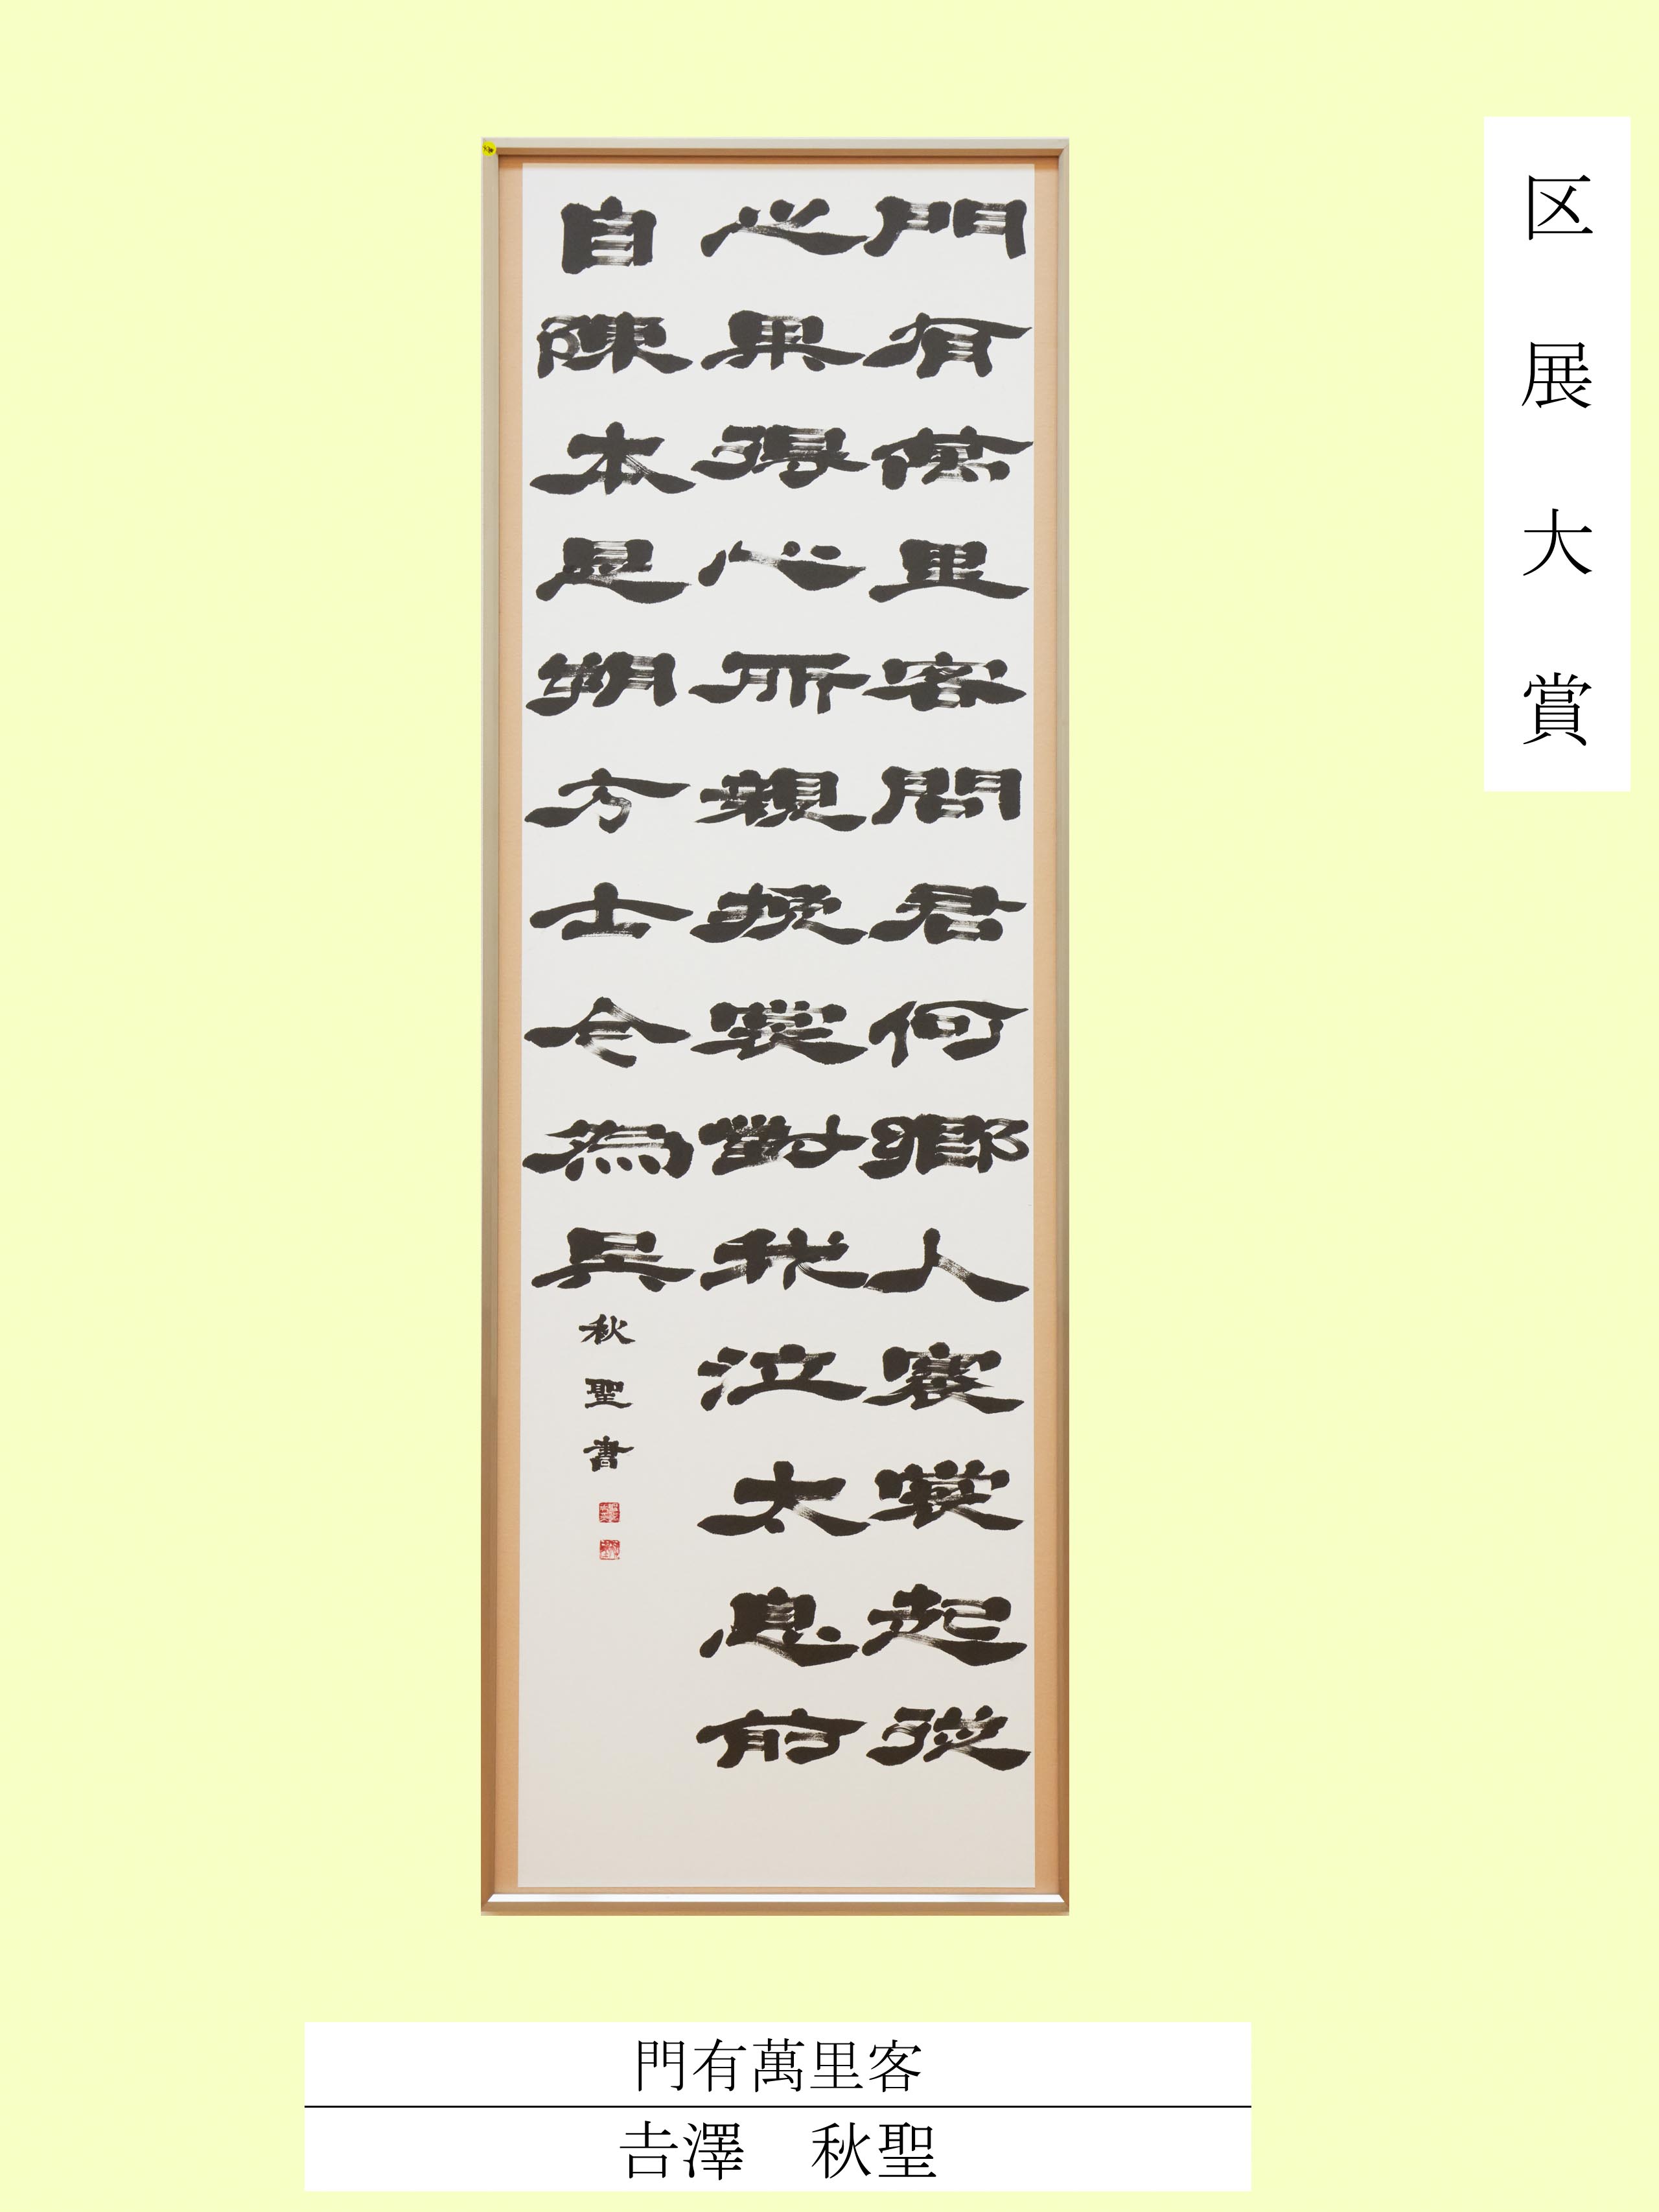 区展大賞
門有萬里客問君何鄉人褰裳起從
之果得心所親挽裳對我泣太息前
自陳本是朔方士今為吳
秋聖書
門有萬里客
𠮷澤　秋聖